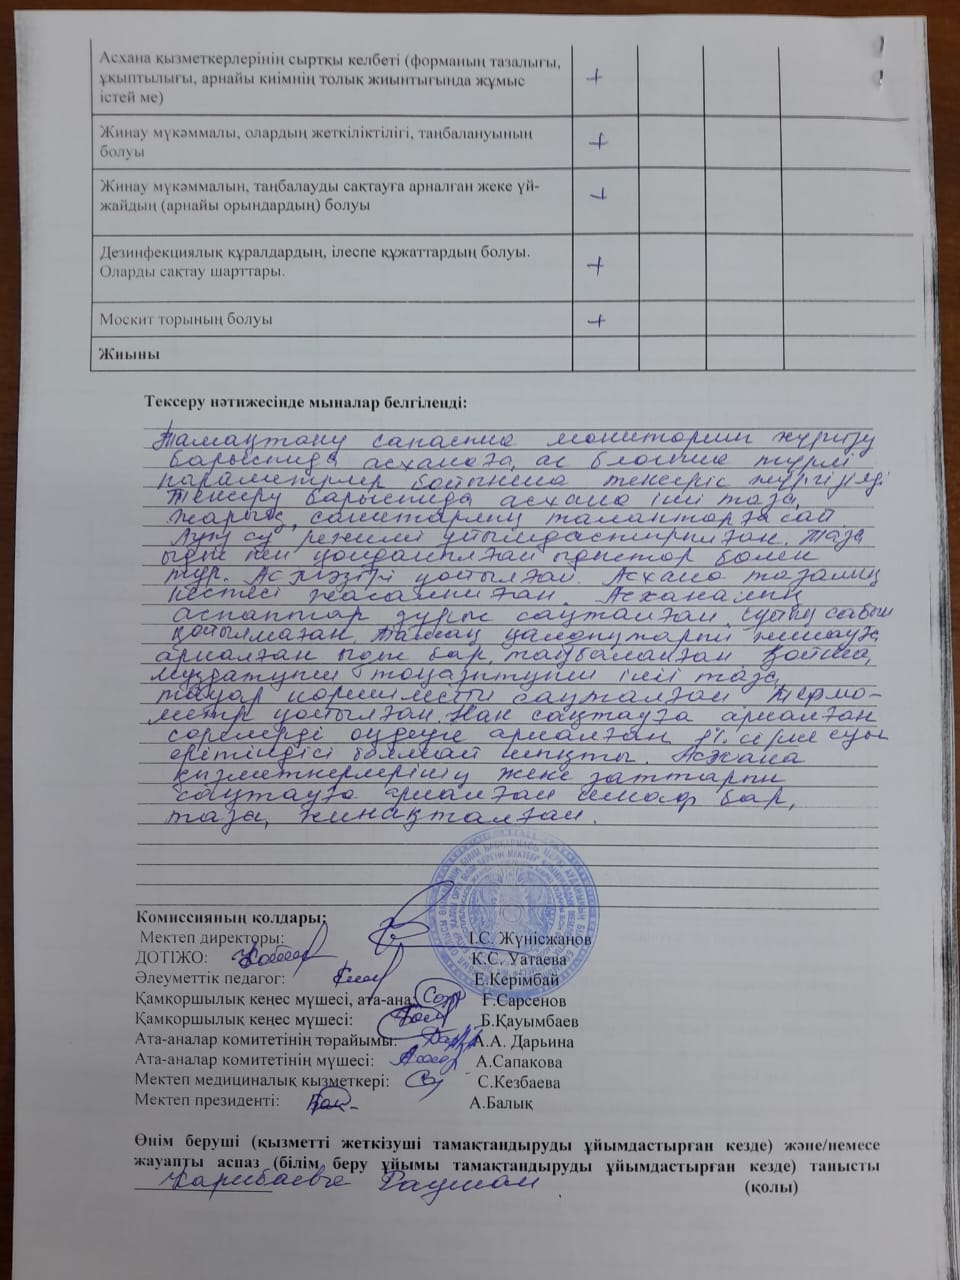 Асхана қызметкерлерінің сыртқы келбеті (форманың тазалығы,
ұқыптылығы, арнайы киімнің толық жиынтығында жұмыс +
істей ме)
Жинау мүкәммалы, олардың жеткіліктілігі, таңбалануының +
болуы
Жинау мүкәммалын, таңбалауды сақтауға арналған жеке үй- +
жайдың (арнайы орындардың) болуы
Дезинфекциялық құралдардың, ілеспе құжаттардың болуы. +
Оларды сақтау шарттары.
Москит торының болуы +
Жиыны
Тексеру нәтижесінде мыналар белгіленді:
Тамақтану сапасына мониторинг жүргізу
барысында асханаға, ас блогына түрлі
параметрлер бойынша тексеріс жүргізілді
Тексеру барысында асхана іші таза,
жарық, санитарлық талаптарға сай.
су режимі ұйымдастырылған. Таза
ыдыс пен қолданылған ыдыстар бөлек
тұр. Ас мәзірі қойылған. Асхана тазалық
кестесі жасалынған. Асханалық
аспаптар дұрыс сақталған. сұйық сабын
қойылмаған. Тамақ қалдықтарын жинауға
арналған ыдыс бар, таңбаланған. Қойма,
мұздатқыш, тоңазытқыш іші таза,
тауар көршілестігі сақталған Термо-
метр қойылған. Нан сақтауға арналған
сөрелерді өңдеуге арналған 1% сірке суы
ерітіндісі Асхана
қызметкерлерінің жеке заттарын
сақтауға арналған шкаф бар,
таза, жинақталған.
Комиссияның қолдары:
Мектеп директоры: І.С. Жүнісжанов
ДОТІЖО: К.С. Уатаева
Әлеуметтік педагог: Е.Керімбай
Қамқоршылық кеңес мүшесі, ата-ана: Ғ.Сарсенов
Қамқоршылық кеңес мүшесі: Б.Қауымбаев
Ата-аналар комитетінің төрайымы: А.А. Дарьина
Ата-аналар комитетінің мүшесі: А.Сапакова
Мектеп медициналық қызметкері: С.Кезбаева
Мектеп президенті: А.Балық
Өнім беруші (қызметті жеткізуші тамақтандыруды ұйымдастырған кезде) және/немесе
жауапты аспаз (білім беру ұйымы тамақтандыруды ұйымдастырған кезде) танысты
(қолы)